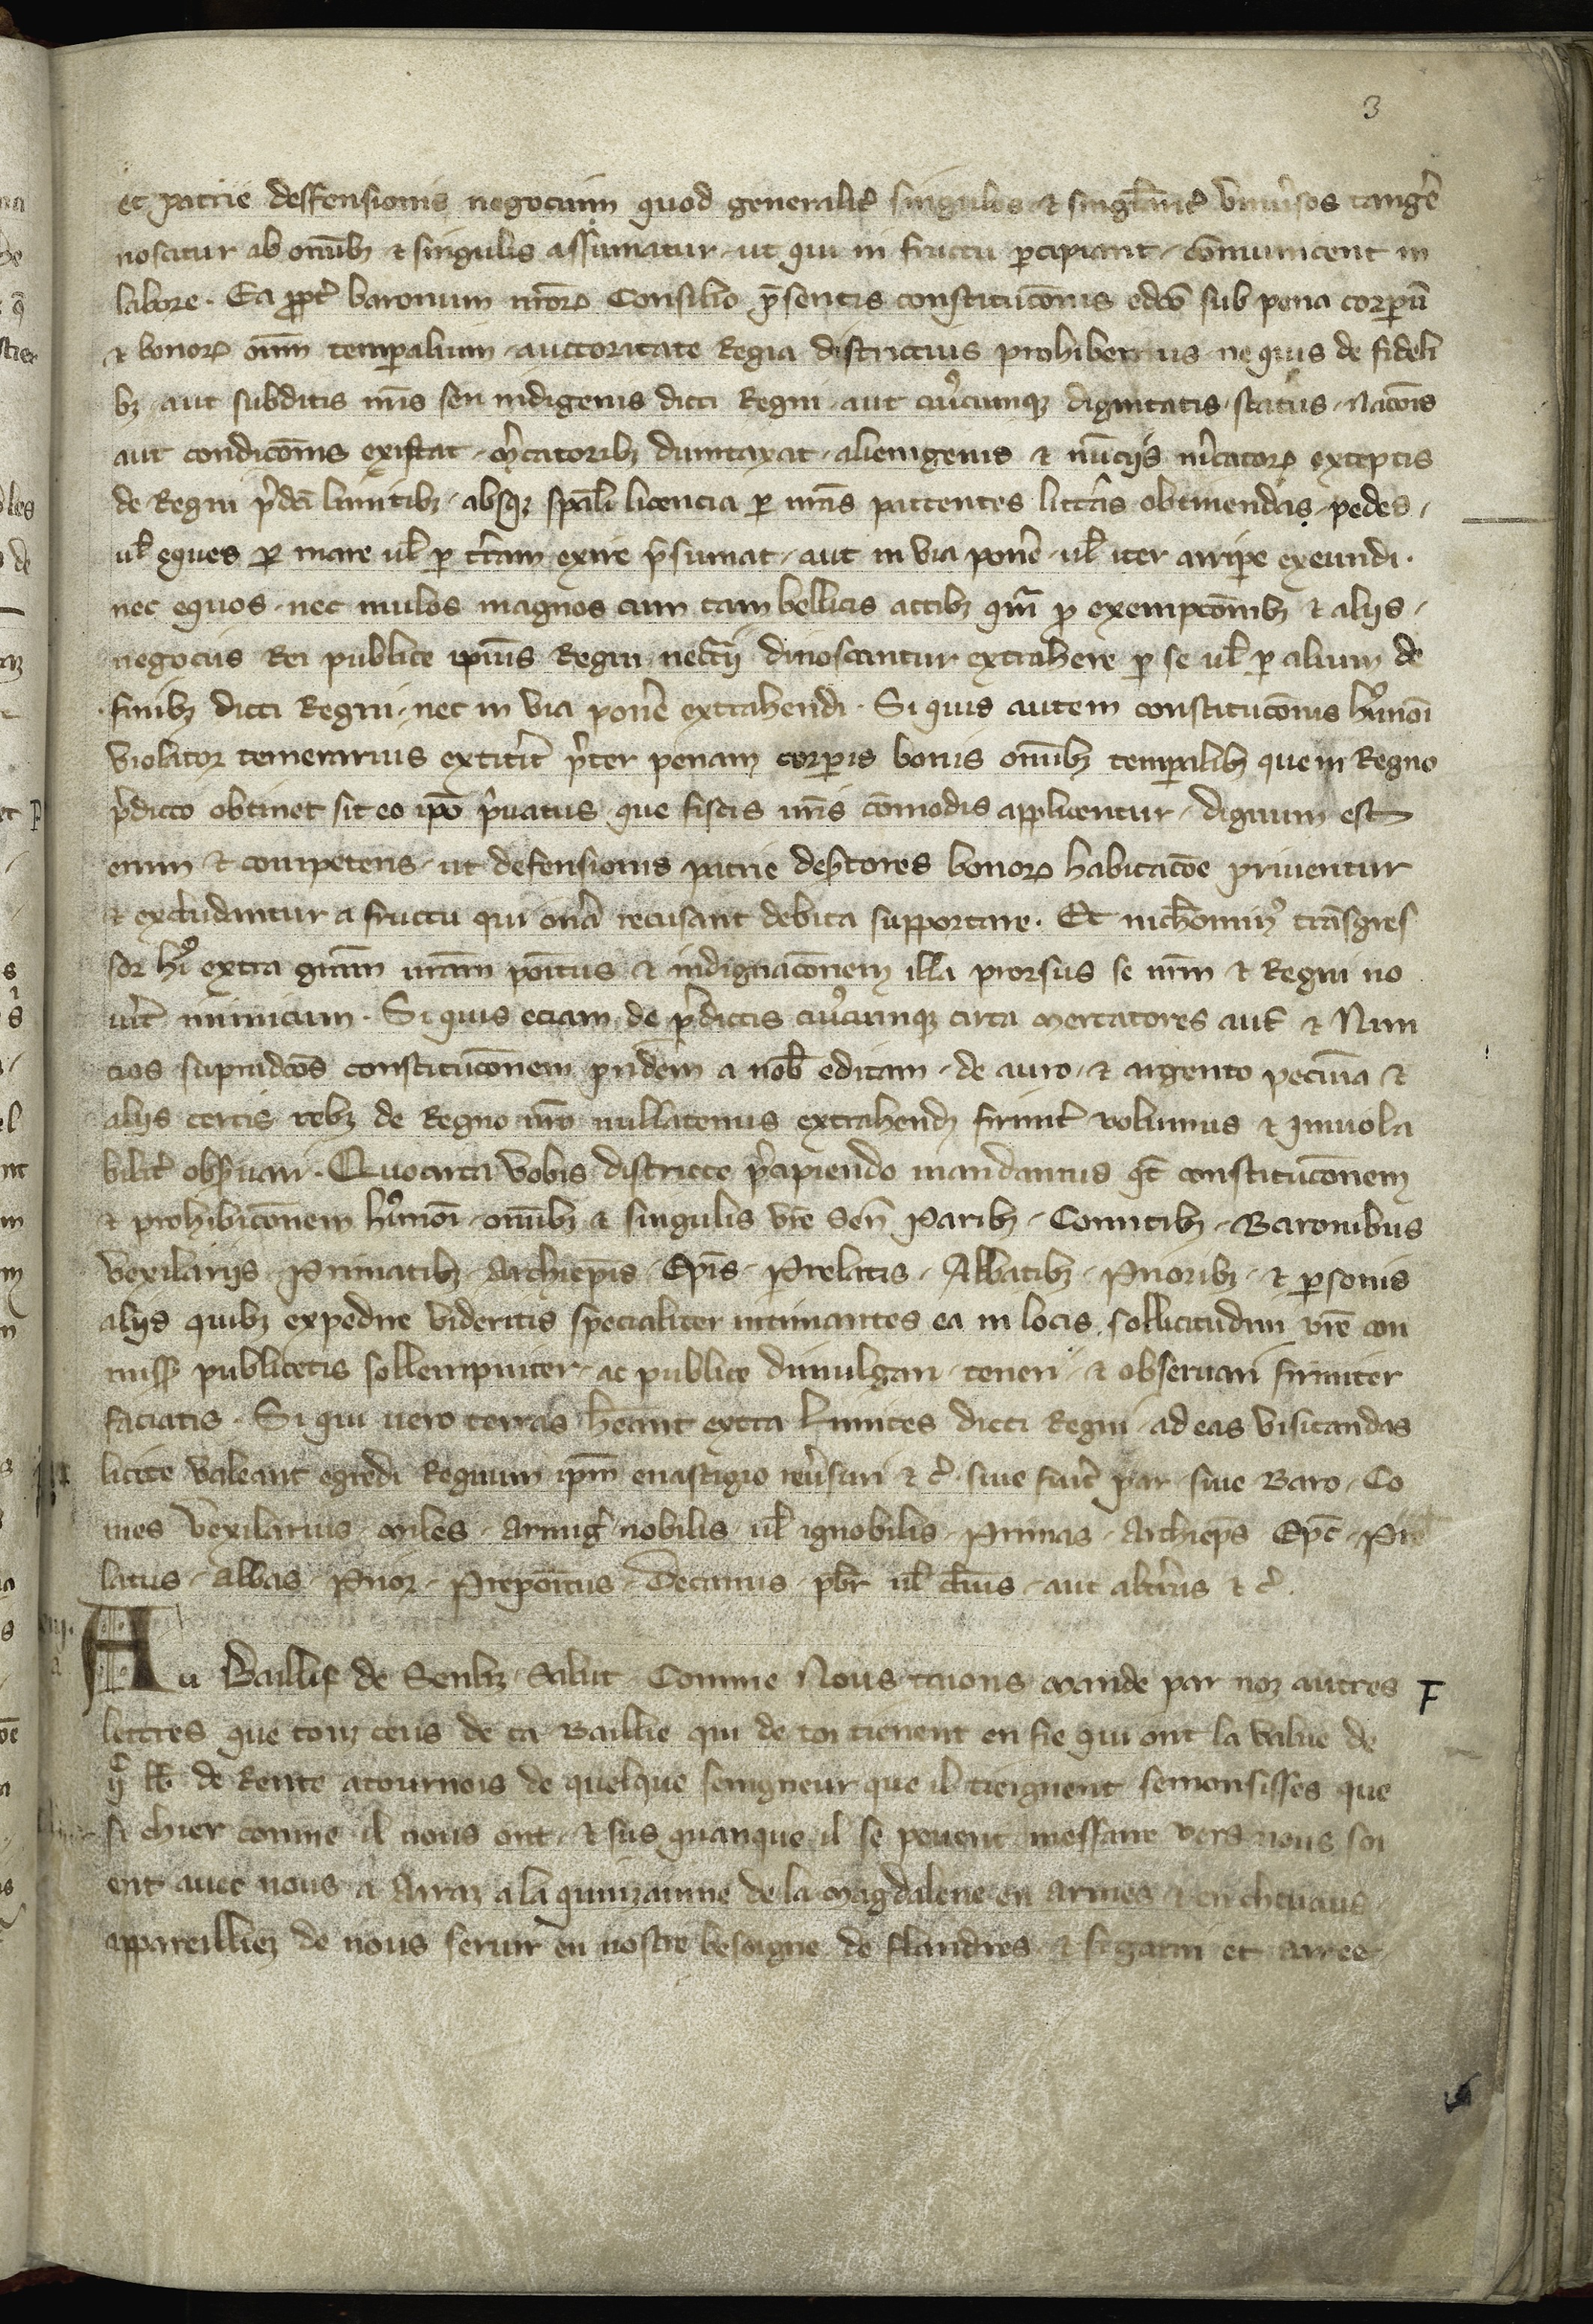 3
et patrie deffensionis negocium quod generalit᷑ singulos & singl̃arit᷑ vniu᷑sos tang̃e
noscatur ab om̃ibꝫ & singulis assumatur ut qui in fructu ꝑcipiant cõmunicent in
labore. Ea ꝓpt᷑ baronum nr̃oꝝ Consilio p̃sentis constitucõnis edc̃o sub pena corꝑũ
& bonoꝝ om̃m temꝑalium auctoritate Regia districtius prohibemus ne quis de fideli
bꝫ aut subditis nr̃is seu indigenis dicti Regni aut cuiᷣcumqꝫ dignitatis status nac̃ois
aut condicõnis existat m᷑catoribꝫ dumtaxat alienigenis & nũciis m᷑catoꝝ exceptis
de Regni p̃dc̃i limitibꝫ absqꝫ sp̃ali licencia ꝑ nr̃as pattentes litt̃as obtinendas pedes
ul̃ eques ꝑ mare ul̃ ꝑ t᷑ram exire p̃sumat aut in via pon̄e ul̃ iter arriꝑe exeundi.
nec equos nec mulos magnos cum tam bellicis actibꝫ qm̃ ꝓ exempcõnibꝫ & aliis
negociis Rei publice ip̃ius Regni nec̃rij dinoscantur extrahere ꝑ se ul̃ ꝑ alium de
finibꝫ dicti Regni nec in via pon̄e extrahendi. Si quis autem constitucõnis huᷣmõi
violator temerarius extit᷑it p̃ter penam corꝑis bonis om̃ibꝫ temꝑalibꝫ que in Regno
p̃dicto obtinet sit eo ip̃o p̃uatus que fiscis nr̃is cõmodis applicentur dignum est
enim & competens ut defensionis patrie desᷣtores bonoꝝ habitac̃oe priuentur
& excludantur a fructu qui on̄a recusant debita supportare. Et nichõminꝰ tr̃asgres
sor hꝰi extra gr̃am nr̃am põitus & indignacõnem illa prorsus se nr̃m & Regni no
u᷑it inimicum. Si quis eciam de p̃dictis cuiᷣcumqꝫ circa mercatores aut᷑ & Nun
cios supradc̃os constitucõnem pridem a nob̃ editam de auro & argento pecũia &
aliis certis rebꝫ de Regno nr̃o nullatenus extrahendꝫ firmit᷑ volumus & Inuiola
bilit᷑ obsᷣuari. Quocirca vobis districte p̃cipiendo mandamus qt̃ constitucõnem
& prohibicõnem huᷣmõi om̃ibꝫ & singulis vr̃e Sen̄ Paribꝫ Comitibꝫ Baronibus
vexilariis Primatibꝫ Archiep̃is Ep̃is Prelatis Abbatibꝫ Prioribꝫ & ꝑsonis
aliis quibꝫ expedire videritis specialiter intimantes ea in locis sollicitudini vr̃e con
missꝭ publicetis sollempniter ac publice diuulgari teneri & obseruari firmiter
faciatis. Si qui uero terras hẽant extra Limites dicti Regni ad eas visitandas
licite valeant egredi Regnum ip̃m euastigio reu᷑suri & c᷑. siue fu᷑it par siue Baro Co
mes vexilarius miles armig᷑ nobilis ul̃ ignobilis Primas Archiep̃s Ep̃c Pre
latus Abbas Prior Prepõitus Decanus pb̃r ul̃ cl̃icus aut alt᷑ius & c᷑.
Au Baillif de Senliz Salut Comme Nous taions mande par noz autres F
lettres que touz ceus de ta Baillie qui de toi tienent en fie qui ont la value de
ijͨ lb̃ de Rente a tournois de quelque seingneur que il tieignent semonsisses que
si chier comme il nous ont & sus quanque il se peuent meffaire vers nous soi
ent auec nous a Arraz a la quinzainne de la Magdalene en armes & en cheuaus
appareilliez de nous seruir en nostre besoigne de Flandres & si garni et arree